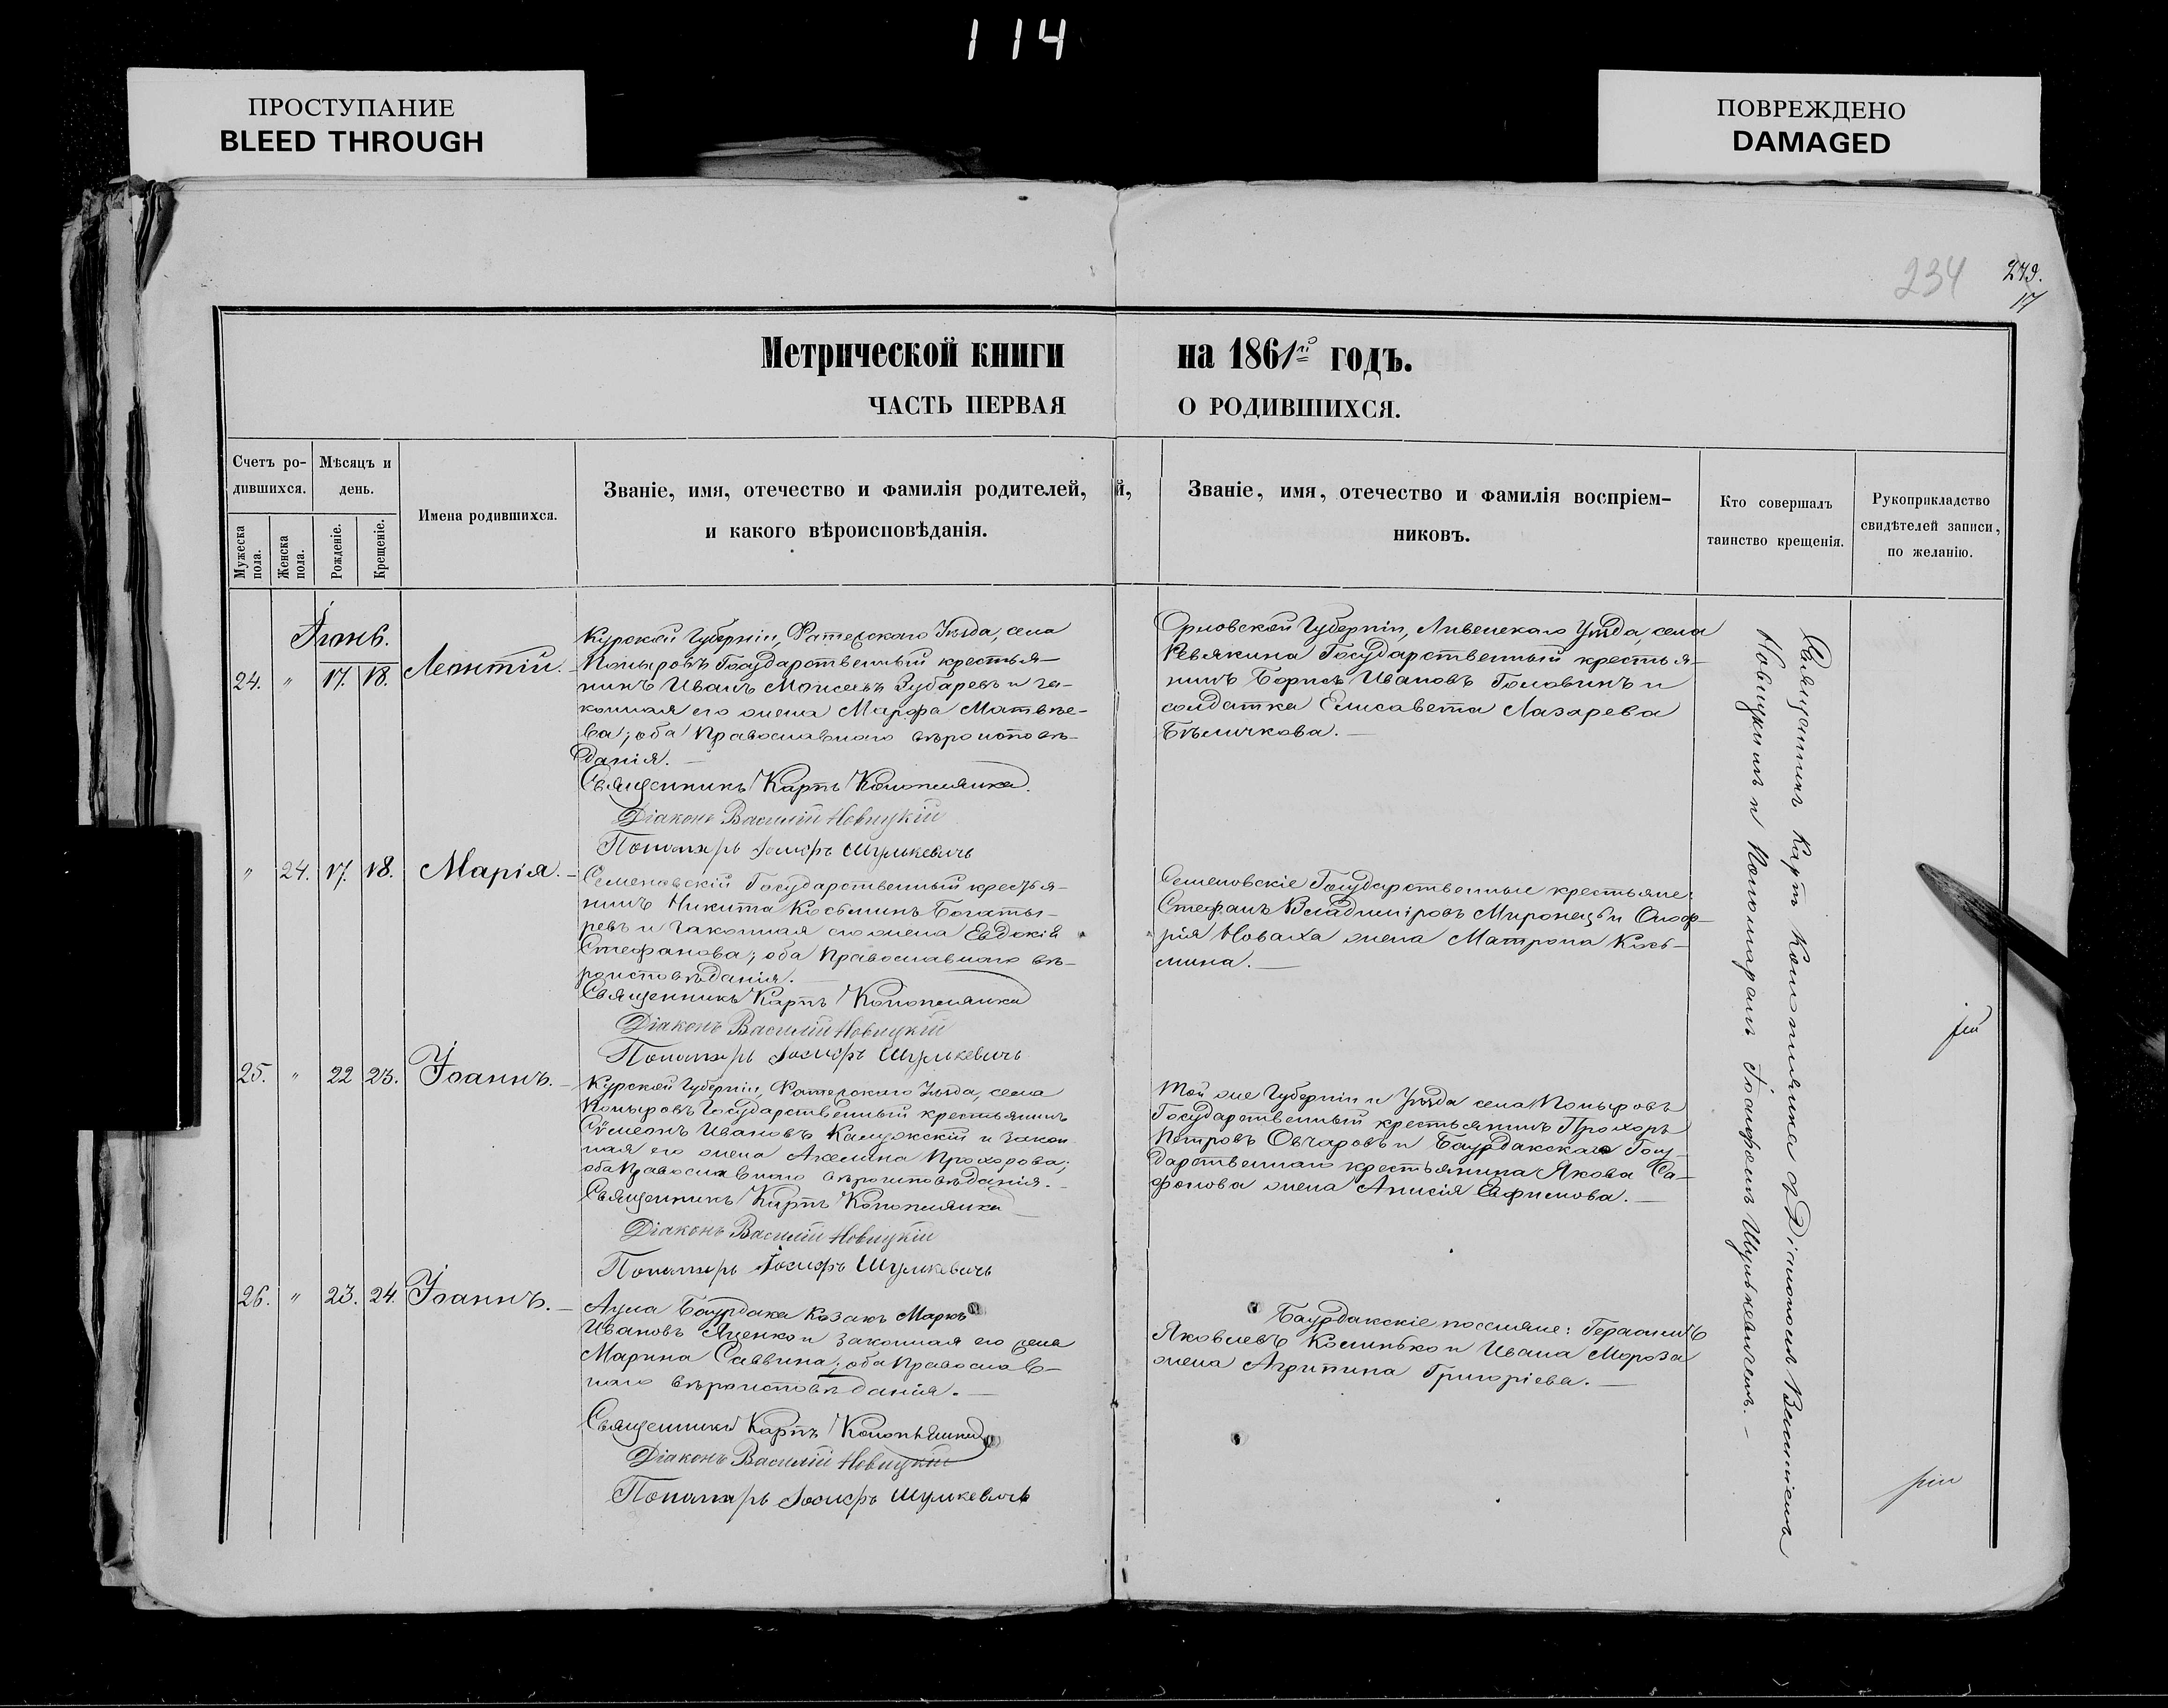 114
ПРОСТУПАНИЕ
BLEED THROUGH
ПОВРЕЖДЕНО
DAMAGED
234
279.
17
Метрической книги на 1861й годъ.
ЧАСТЬ ПЕРВАЯ О РОДИВШИХСЯ.
Счетъ ро-
дившихся.
Мѣсяцъ и
день.
Мужеска пола.
Женска пола.
Рожденіе.
Крещеніе.
Имена родившихся.
Званіе, имя, отечество и фамилія родителей,
и какого вѣроисповѣданія.
й,
Званіе, имя, отечество и фамилія воспріем-
никовъ.
Кто совершалъ
таинство крещенія.
Рукоприкладство
свидѣтелей записи,
по желанію.
24. " 17. 18. Леонтій.
Курской Губерніи, Фатежскаго Уѣзда, села
Поныровъ Государственный крестья-
нинъ Иванъ Моисеевъ Зубаревъ и за-
конная его жена Марфа Матвѣе-
ва; оба Православнаго вѣроисповѣ-
данія.
Священникъ Карпъ Коноплянка.
Діаконъ Василій Новицкій
Пономарь Іосифъ Шулькевичъ
Орловской Губерніи, Ливенскаго Уѣзда, села
Ревякина Государственный крестья-
нинъ Борисъ Ивановъ Головинъ и
солдатка Елисавета Лазарева
Бѣличкова.
" 24. 17. 18. Марія.
Семеновскій Государственный крестья-
нинъ Никита Косьминъ Богаты-
ревъ и законная его жена Евдокія
Стефанова; оба Православнаго вѣ-
роисповѣданія.
Священникъ Карпъ Коноплянка
Діаконъ Василій Новицкій
Пономарь Іосифъ Шулькевичъ
Семеновскіе Государственные крестьяне:
Стефанъ Владиміровъ Миронецъ и Оноф-
рія Новаха жена Матрона Кось-
мина.
25. " 22 23. Іоаннъ.
Курской Губерніи, Фатежскаго Уѣзда, села
Поныровъ Государственный крестьянинъ
Сѵмеонъ Ивановъ Калужскій и закон
ная его жена Акелина Прохорова;
оба Православнаго вѣроисповѣданія.
Священникъ Карпъ Коноплянка
Діаконъ Василій Новицкій
Пономарь Іосифъ Шулькевичъ
Той же Губерніи и Уѣзда села Поныровъ
Государственный крестьянинъ Прохоръ
Петровъ Овчаровъ и Баурдакскаго Госу-
дарственнаго крестьянина Якова Са-
фонова жена Анисія Евфимова.
26. " 23. 24. Іоаннъ.
Аула Баурдака Козакъ Марко
Ивановъ Яценко и законная его жена
Марина Саввина; оба Православ-
наго вѣроисповѣданія.
Священникъ Карпъ Коноплянка
Діаконъ Василій Новицкій
Пономарь Іосифъ Шулькевичъ
Баурдакскіе поселяне: Герасимъ
Яковлевъ Косинько и Ивана Мороза
жена Агрипина Григоріева.
Священникъ Карпъ Коноплянка съ Діакономъ Василіемъ
Новицкимъ и Пономаремъ Іосифомъ Шулькевичемъ.